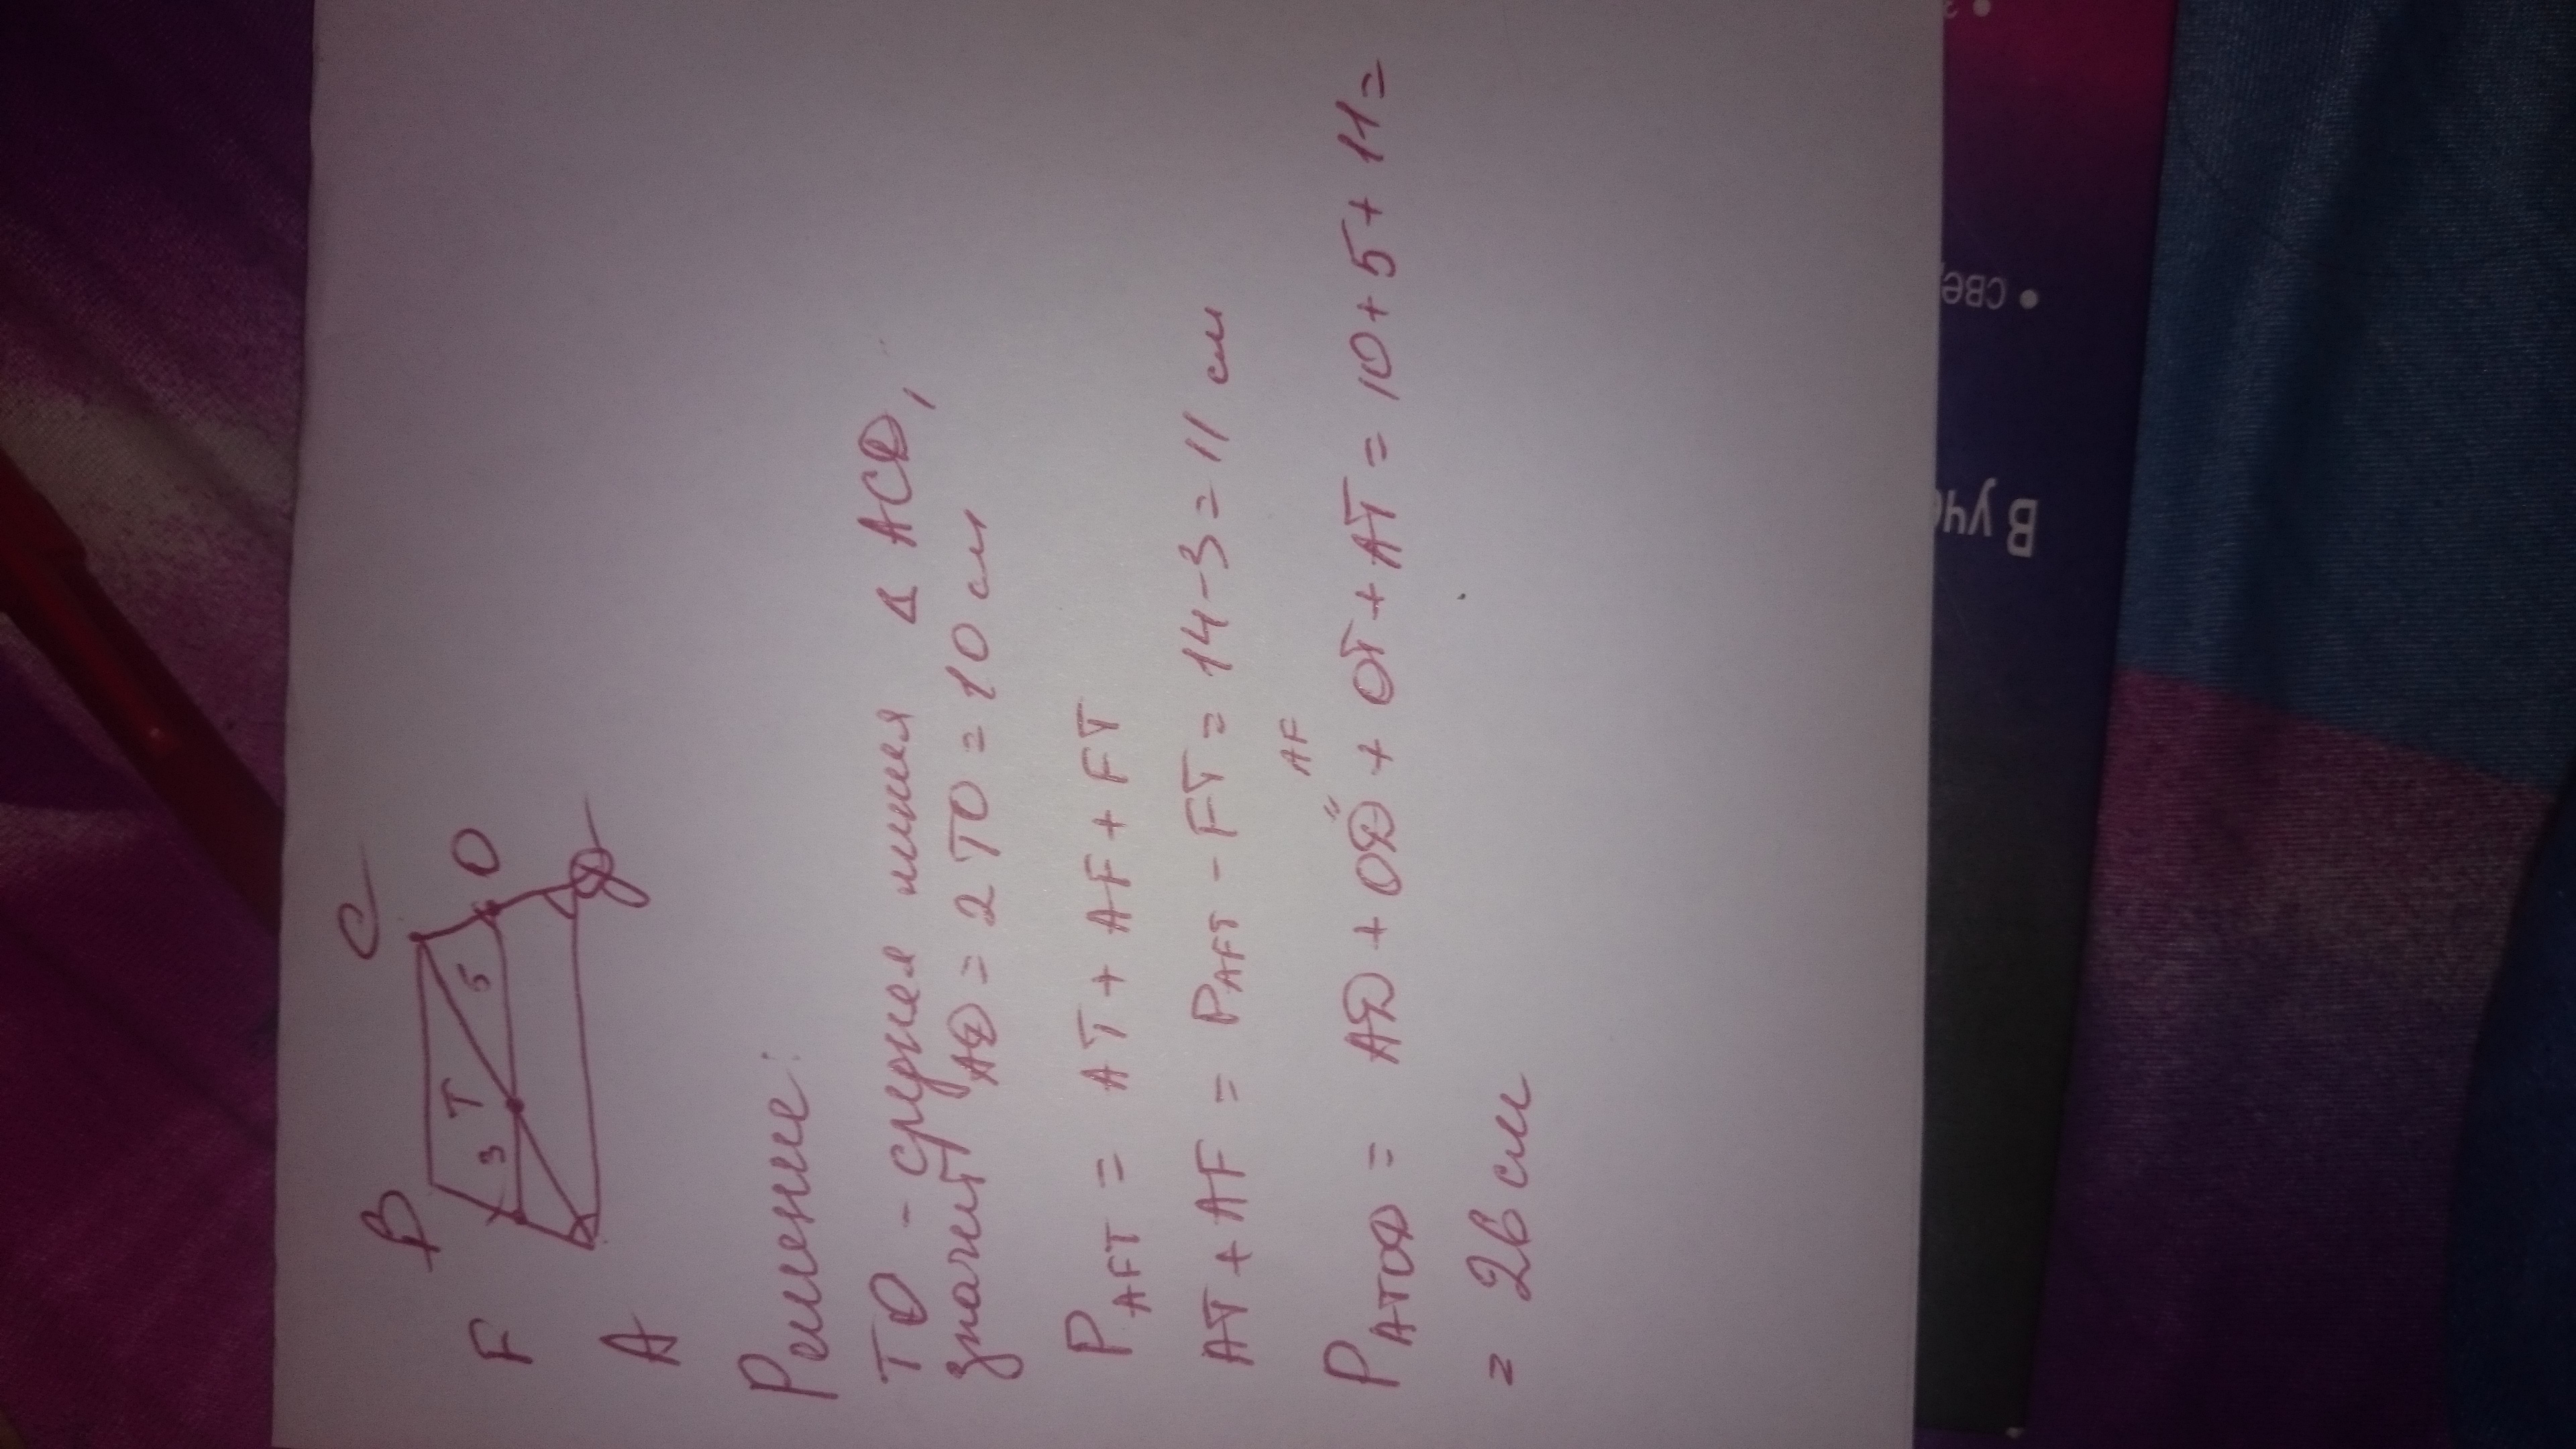 B C
F 3 T 5 O
A D
Решение:
TO - средняя линия Δ ACD,
значит AD = 2 TO = 10 см
P AFT = AT + AF + FT
AT + AF = P AFT - FT = 14 - 3 = 11 см
AF
P ATOD = AD + OD + OT + AT = 10 + 5 + 11 =
= 26 см
• све